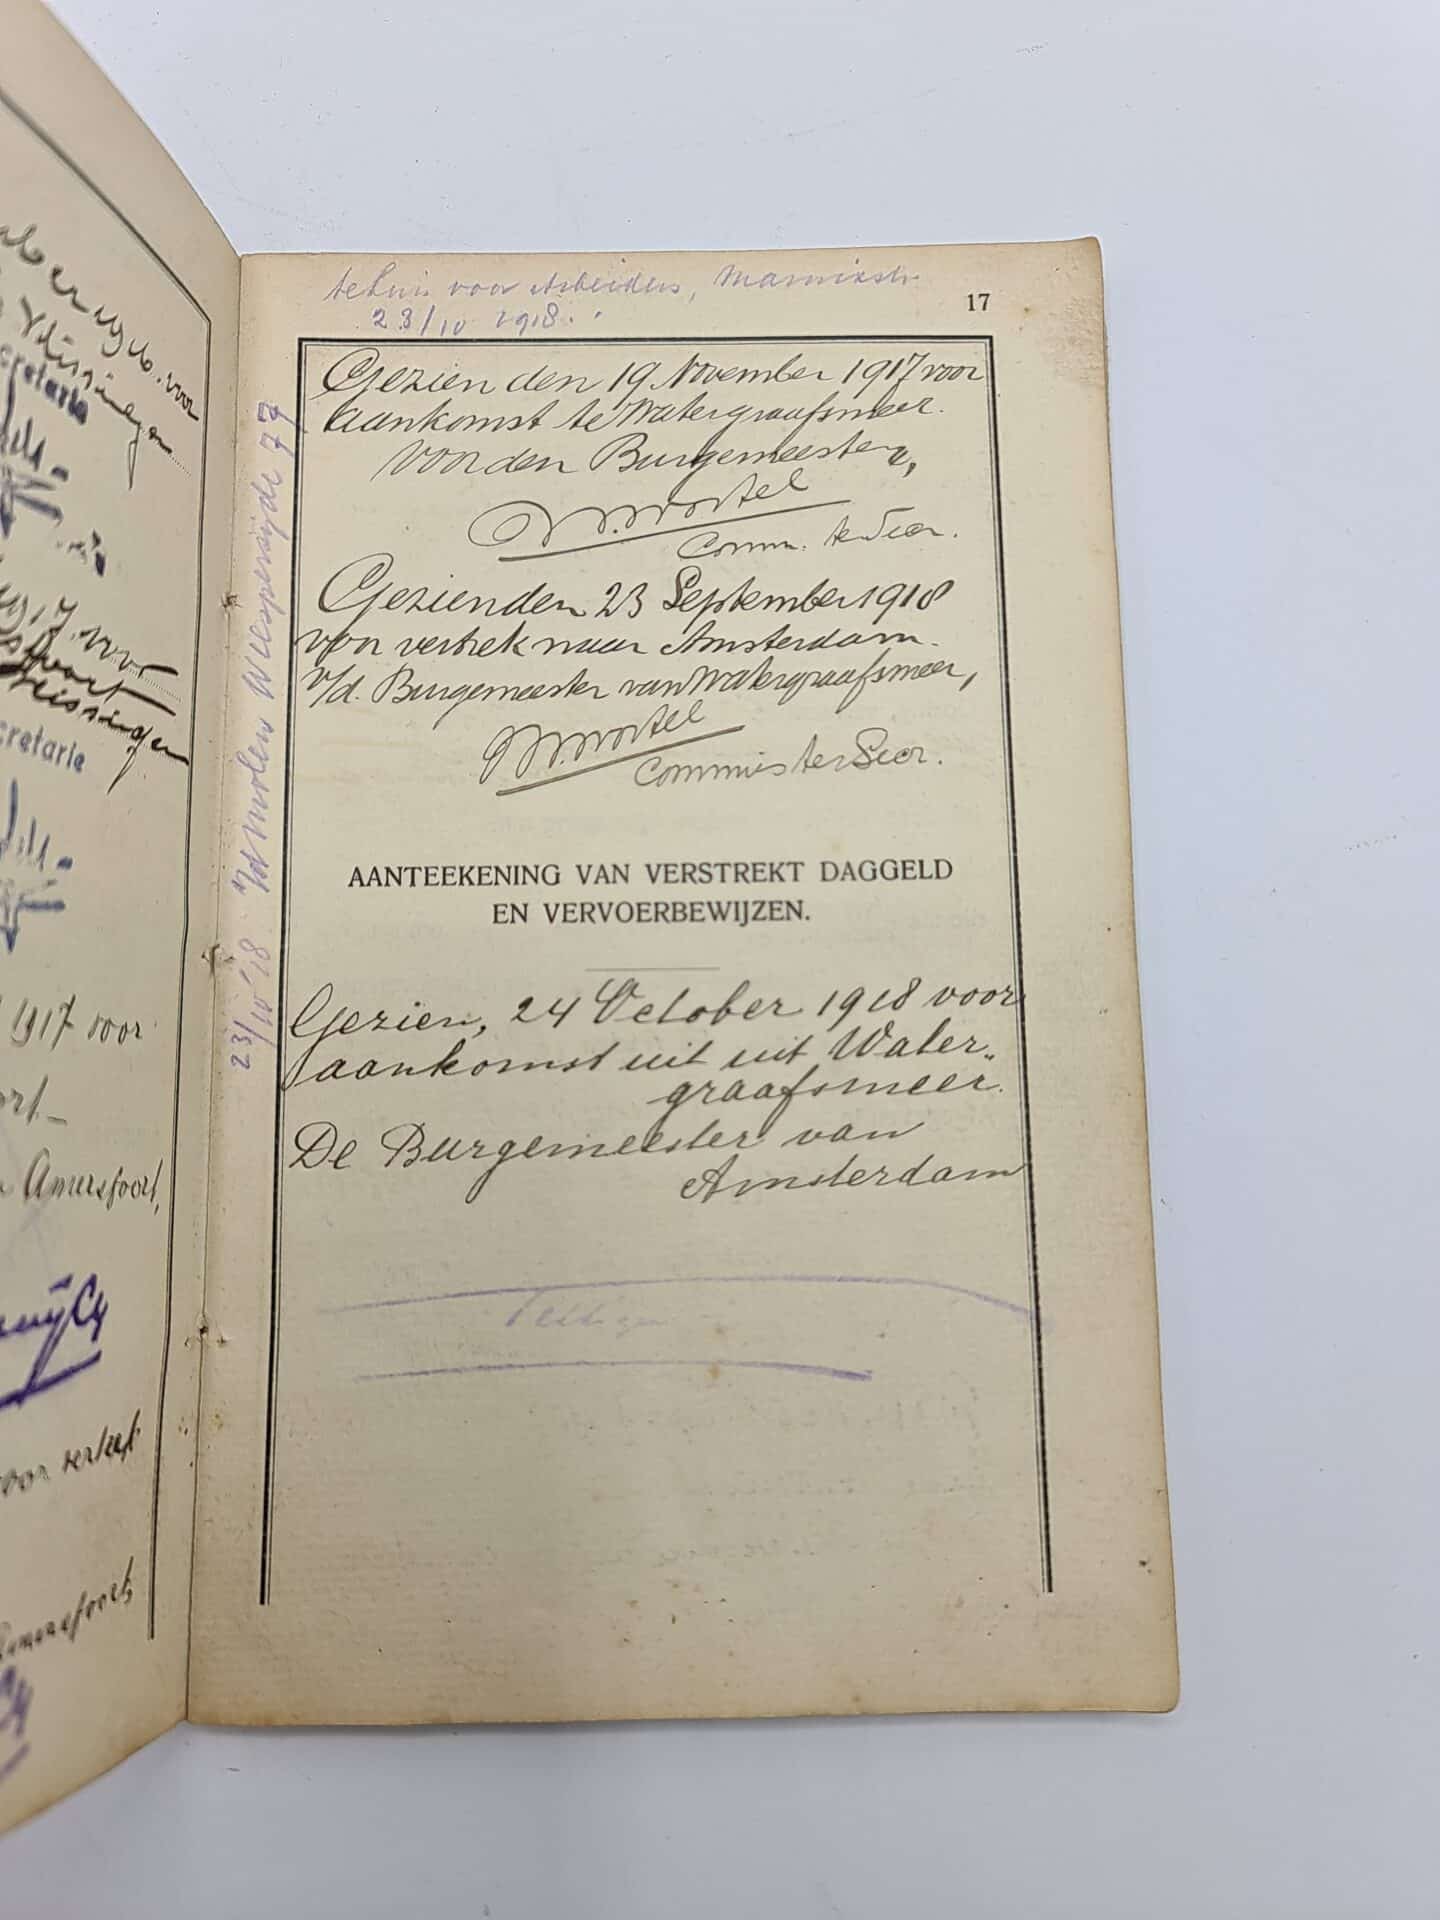 ber 1916. voor
Vlissingen
cretarie
1917. voor
Vlissingen
cretarie
1917 voor
ort.
Amersfoort,
voor vertrek
Amersfoort,
tehuis voor Arbeiders, Marnixstr
23/10 1918.
17
23/10 '18 v/d Molen Weesperzijde 77
Gezien den 19 November 1917 voor
aankomst te Watergraafsmeer.
Voor den Burgemeester,
Wortel
Comm. ter Secr.
Gezien den 23 September 1918
voor vertrek naar Amsterdam.
v/d. Burgemeester van Watergraafsmeer,
Wortel
Commies ter Secr.
AANTEEKENING VAN VERSTREKT DAGGELD
EN VERVOERBEWIJZEN.
Gezien, 24 October 1918 voor
aankomst uit uit Water-
graafsmeer.
De Burgemeester van
Amsterdam